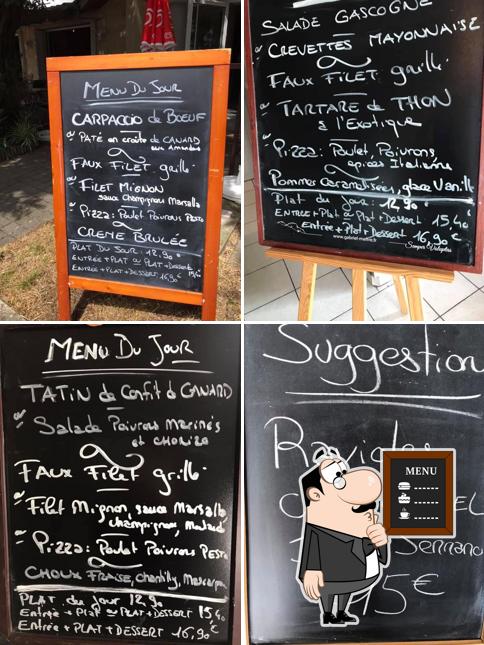 MENU DU JOUR
CARPACCIO de BOEUF
ou PATÉ en croûte de CANARD
aux Amandes
FAUX FILET grillé
ou FILET MIGNON
sauce Champignons Marsalla
ou PIZZA: Poulet Poivrons Pesto
CREME BRULÉE
PLAT DU JOUR: 12,90€
ENTRÉE + PLAT ou PLAT + DESSERT 15,40€
ENTRÉE + PLAT + DESSERT: 16,90€
SALADE GASCOGNE
ou CREVETTES MAYONNAISE
FAUX FILET grillé
ou TARTARE de THON
à l'Exotique
ou Pizza: Poulet, Poivrons,
épices Italiennes
Pommes Caramelisées, glace Vanille
Plat du jour: 12,90€
ENTREE + Plat ou Plat + Dessert 15,40
Entrée + Plat + Dessert 16,90€
MENU DU JOUR
TATIN de Confit de CANARD
ou Salade Poivrons Marinés
et CHORIZO
FAUX FILET grillé
ou Filet Mignon, sauce Marsalla
champignons, Moutarde
ou Pizza: Poulet Poivrons PESTO
CHOUX FRAISE, chantilly, Mascarpone
PLAT du Jour 12,90
Entrée + PLAT ou PLAT + DESSERT 15,40€
Entrée + PLAT + DESSERT 16,90€
Suggestion
MENU
Serrano
15€